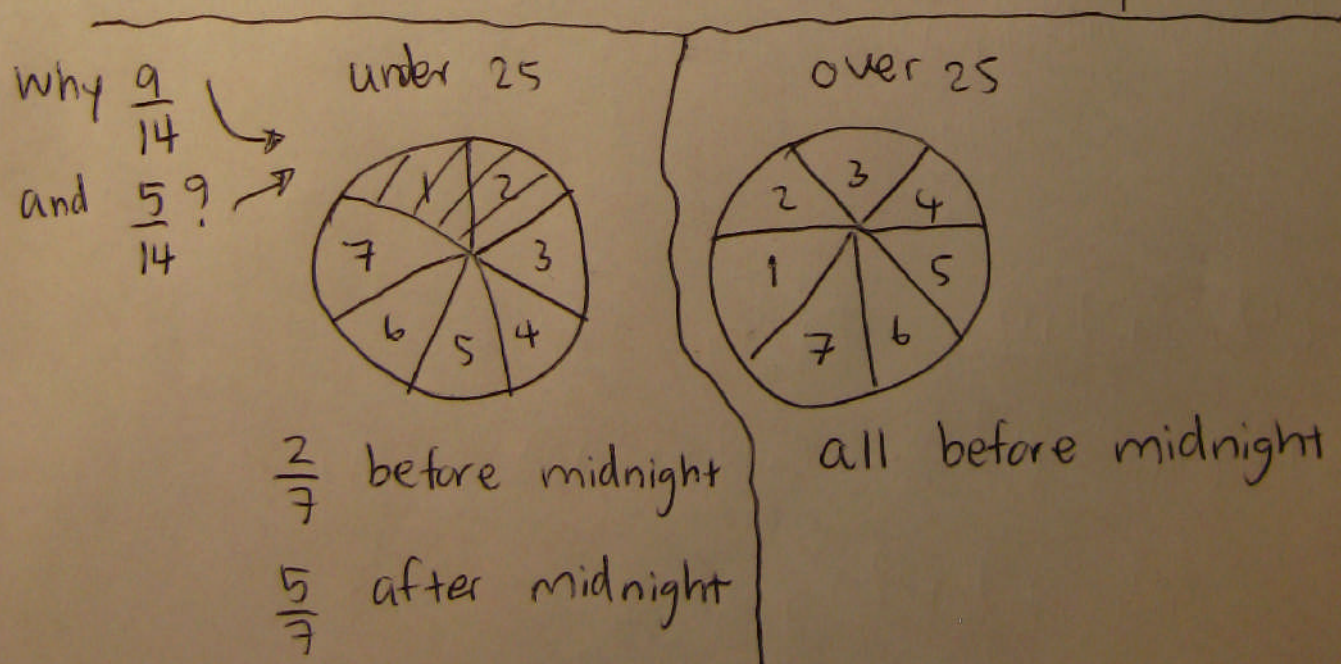 why 9/14
and 5/14?
under 25
1 2 3 4 5 6 7
2/7 before midnight
5/7 after midnight
over 25
1 2 3 4 5 6 7
all before midnight